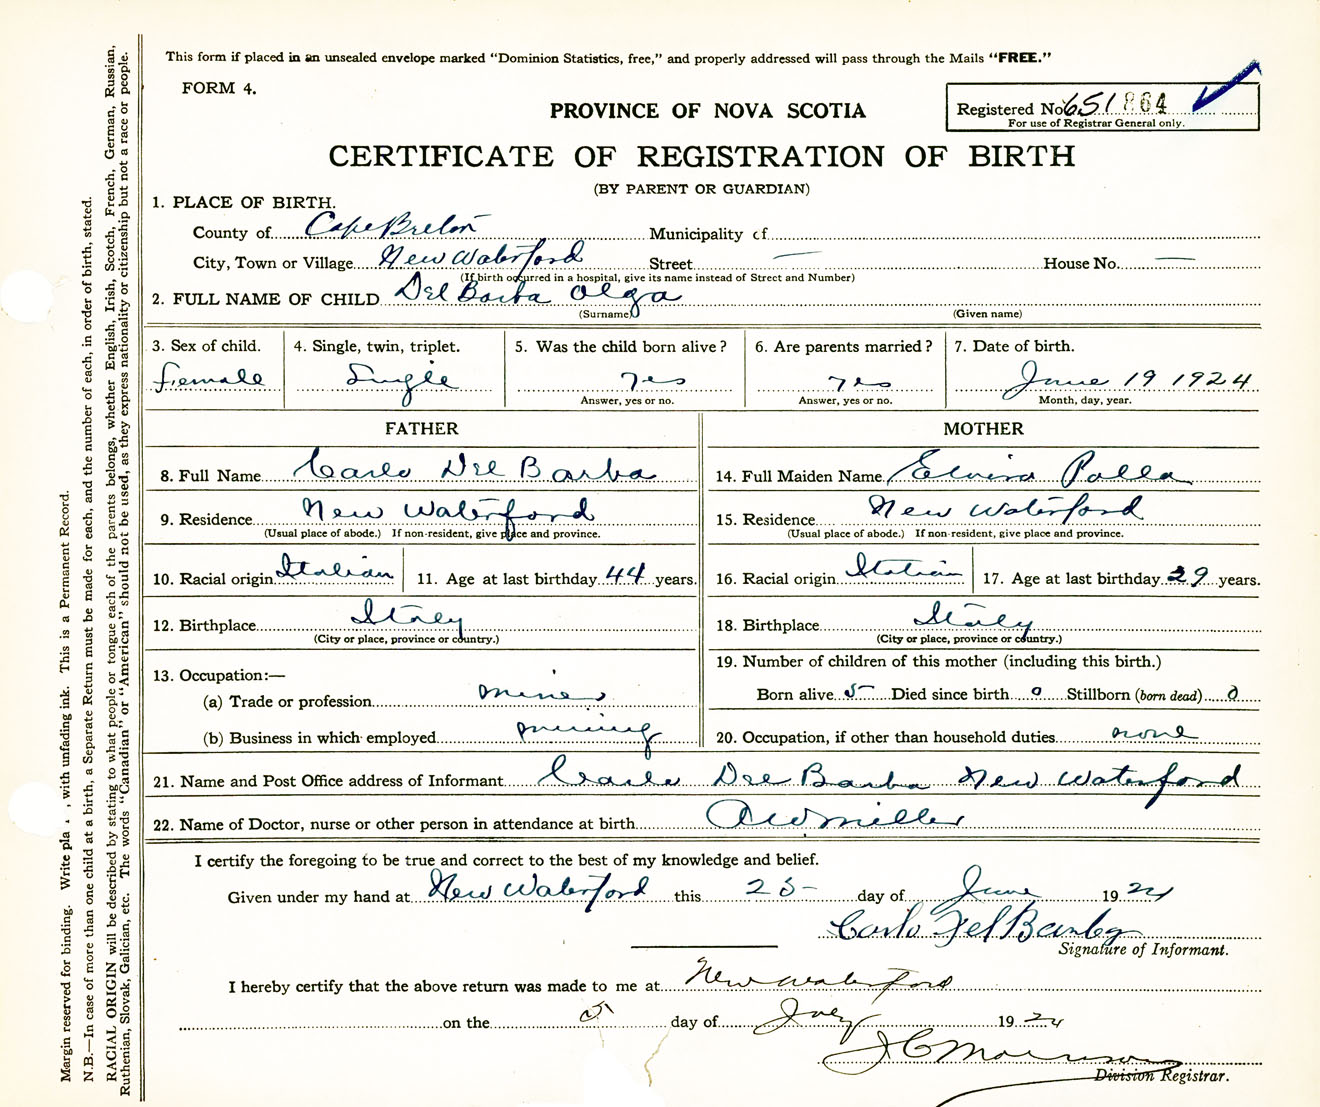 This form if placed in an unsealed envelope marked "Dominion Statistics, free," and properly addressed will pass through the Mails "FREE."
FORM 4.
PROVINCE OF NOVA SCOTIA
Registered No 651864
For use of Registrar General only.
CERTIFICATE OF REGISTRATION OF BIRTH
(BY PARENT OR GUARDIAN)
1. PLACE OF BIRTH.
County of Cape Breton Municipality of
City, Town or Village New Waterford Street — House No. —
(If birth occurred in a hospital, give its name instead of Street and Number)
2. FULL NAME OF CHILD Del Barba Olga
(Surname) (Given name)
3. Sex of child. 4. Single, twin, triplet. 5. Was the child born alive? 6. Are parents married? 7. Date of birth.
female Single yes yes June 19 1924
Answer, yes or no. Answer, yes or no. Month, day, year.
FATHER MOTHER
8. Full Name Carlo Del Barba 14. Full Maiden Name Elvira Palla
9. Residence New Waterford 15. Residence New Waterford
(Usual place of abode.) If non-resident, give place and province. (Usual place of abode.) If non-resident, give place and province.
10. Racial origin Italian 11. Age at last birthday 44 years. 16. Racial origin Italian 17. Age at last birthday 29 years.
12. Birthplace Italy 18. Birthplace Italy
(City or place, province or country.) (City or place, province or country.)
13. Occupation:— 19. Number of children of this mother (including this birth.)
(a) Trade or profession miner Born alive 5 Died since birth 0 Stillborn (born dead) 0
(b) Business in which employed mining 20. Occupation, if other than household duties none
21. Name and Post Office address of Informant Carlo Del Barba New Waterford
22. Name of Doctor, nurse or other person in attendance at birth A W Miller
I certify the foregoing to be true and correct to the best of my knowledge and belief.
Given under my hand at New Waterford this 25 day of June 1924
Carlo Del Barba
Signature of Informant.
I hereby certify that the above return was made to me at New Waterford
on the 5 day of July 1924
J C Morrison
Division Registrar.
Margin reserved for binding. Write pla , with unfading ink. This is a Permanent Record.
N.B.—In case of more than one child at a birth, a Separate Return must be made for each, and the number of each, in order of birth, stated.
RACIAL ORIGIN will be described by stating to what people or tongue each of the parents belongs, whether English, Irish, Scotch, French, German, Russian,
Ruthenian, Slovak, Galician, etc. The words "Canadian" or "American" should not be used, as they express nationality or citizenship but not a race or people.